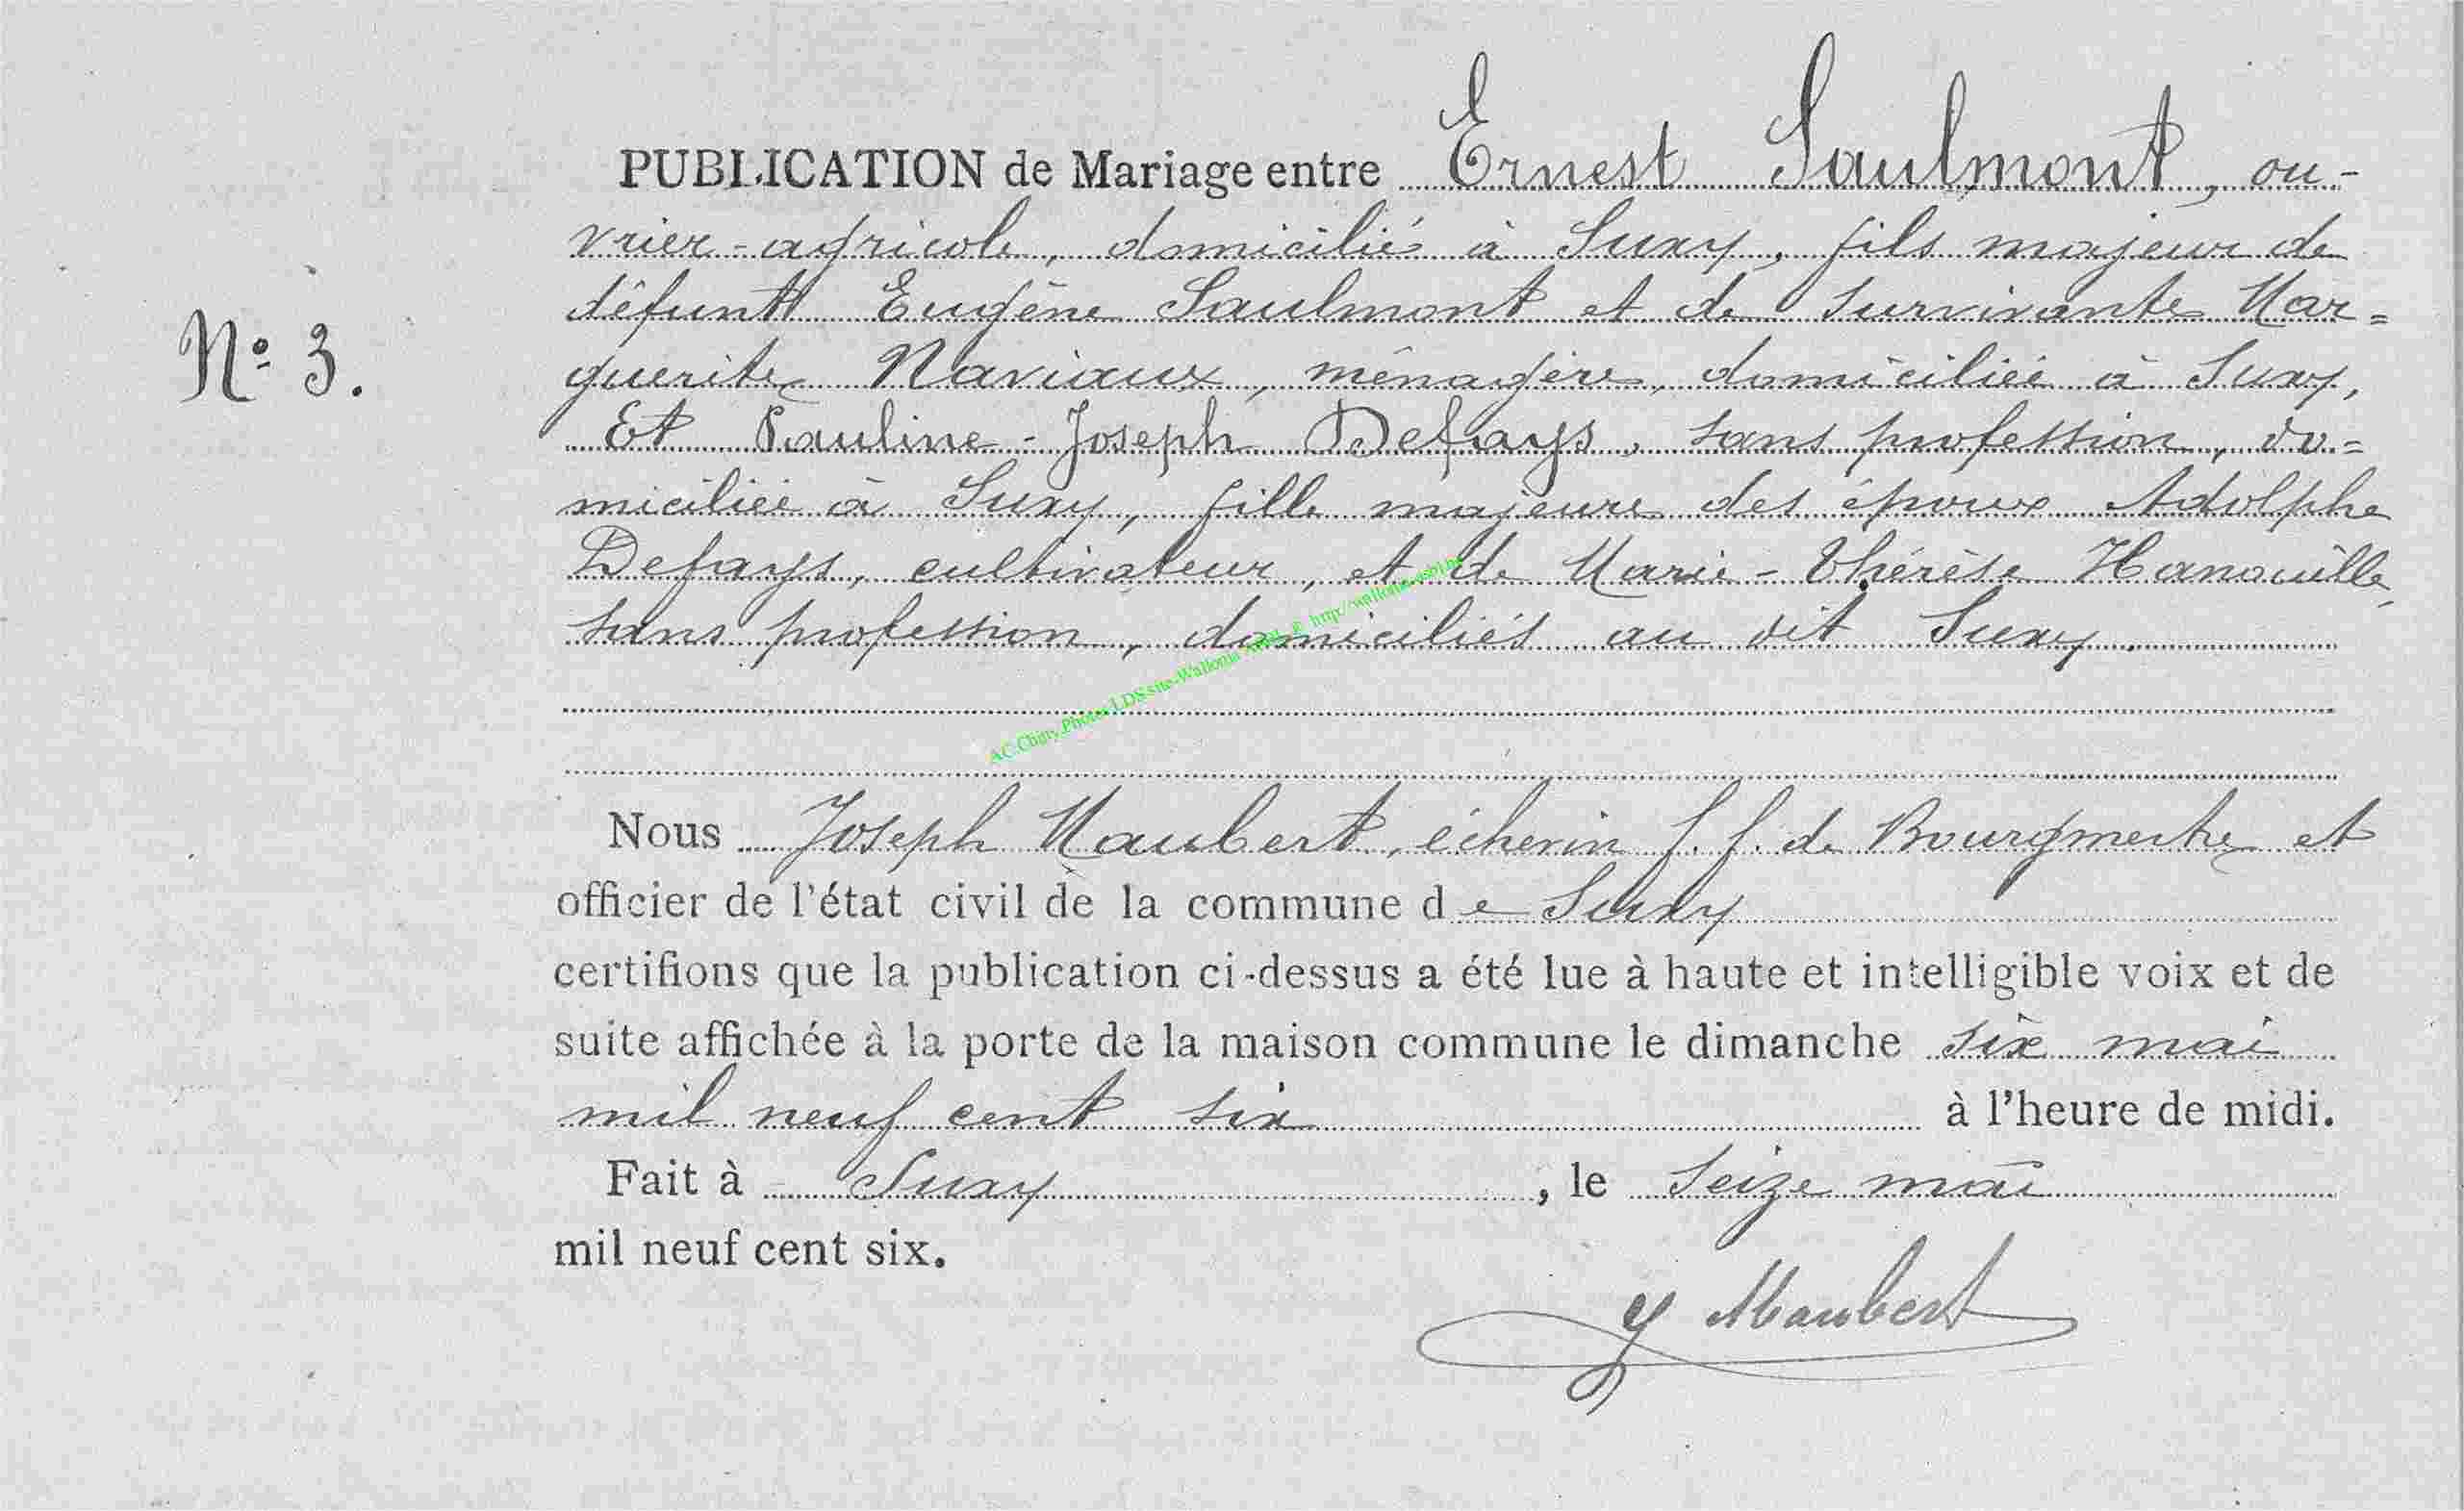 PUBLICATION de Mariage entre Ernest Saulmont, ou-
vrier-agricole, domicilié à Suxy, fils majeur de
défunt Eugène Saulmont et de survivante Mar=
N° 3.
guerite Naviaux, ménagère, domiciliée à Suxy,
Et Pauline-Joseph Defays, sans profession, do=
miciliée à Suxy, fille majeure des époux Adolphe
Defays, cultivateur, et de Marie-Thérèse Hanouille,
sans profession, domiciliés au dit Suxy.
AC.Chiny Photos LDS site-Wallonia
Nous Joseph Maubert, échevin f.f. de Bourgmestre et
officier de l'état civil de la commune de Suxy
certifions que la publication ci-dessus a été lue à haute et intelligible voix et de
suite affichée à la porte de la maison commune le dimanche six mai
mil neuf cent six à l'heure de midi.
Fait à Suxy, le seize mai
mil neuf cent six.
J Maubert